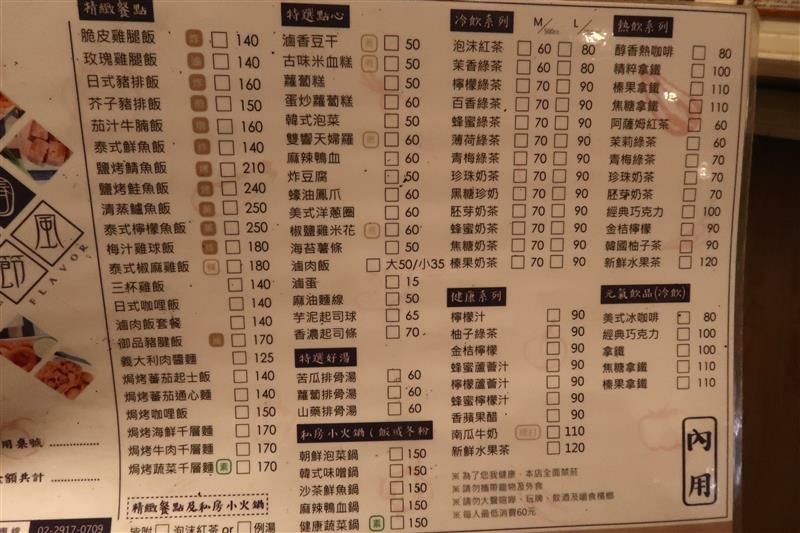 精緻餐點
脆皮雞腿飯 140
玫瑰雞腿飯 140
日式豬排飯 160
芥子豬排飯 150
茄汁牛腩飯 160
泰式鮮魚飯 140
鹽烤鯖魚飯 210
鹽烤鮭魚飯 240
清蒸鱸魚飯 250
泰式檸檬魚飯 250
梅汁雞球飯 180
泰式椒麻雞飯 180
三杯雞飯 140
日式咖哩飯 140
滷肉飯套餐 140
御品豬腱飯 170
義大利肉醬麵 125
焗烤蕃茄起士飯 140
焗烤蕃茄通心麵 140
焗烤咖哩飯 150
焗烤海鮮千層麵 170
焗烤牛肉千層麵 170
焗烤蔬菜千層麵 素 170
精緻餐點及私房小火鍋
皆附 泡沫紅茶 or 例湯
特選點心
滷香豆干 50
古味米血糕 50
蘿蔔糕 50
蛋炒蘿蔔糕 60
韓式泡菜 50
雙響天婦羅 60
麻辣鴨血 60
炸豆腐 50
蠔油鳳爪 60
美式洋蔥圈 60
椒鹽雞米花 60
海苔薯條 50
滷肉飯 大50/小35
滷蛋 15
麻油麵線 50
芋泥起司球 65
香濃起司條 70
特選好湯
苦瓜排骨湯 60
蘿蔔排骨湯 60
山藥排骨湯 60
私房小火鍋(飯或冬粉
朝鮮泡菜鍋 150
韓式味噌鍋 150
沙茶鮮魚鍋 150
麻辣鴨血鍋 150
健康蔬菜鍋 素 150
冷飲系列 M/500cc L/
泡沫紅茶 60 80
茉香綠茶 60 80
檸檬綠茶 70 90
百香綠茶 70 90
蜂蜜綠茶 70 90
薄荷綠茶 70 90
青梅綠茶 70 90
珍珠奶茶 70 90
黑糖珍奶 70 90
胚芽奶茶 70 90
蜂蜜奶茶 70 90
焦糖奶茶 70 90
榛果奶茶 70 90
健康系列
檸檬汁 90
柚子綠茶 90
金桔檸檬 90
蜂蜜蘆薈汁 90
檸檬蘆薈汁 90
蜂蜜檸檬汁 90
香蘋果醋 90
南瓜牛奶 現打 110
新鮮水果茶 120
※為了您我健康,本店全面禁菸
※請勿攜帶寵物及外食
※請勿大聲喧嘩、玩牌、飲酒及嚼食檳榔
※每人最低消費60元
熱飲系列
醇香熱咖啡 80
精粹拿鐵 100
榛果拿鐵 110
焦糖拿鐵 110
阿薩姆紅茶 60
茉莉綠茶 60
青梅綠茶 70
珍珠奶茶 70
胚芽奶茶 70
經典巧克力 100
金桔檸檬 90
韓國柚子茶 90
新鮮水果茶 120
元氣飲品(冷飲)
美式冰咖啡 80
經典巧克力 100
拿鐵 100
焦糖拿鐵 110
榛果拿鐵 110
內用
風
節
FLAVOR
用桌號
金額共計
專線 02-2917-0709